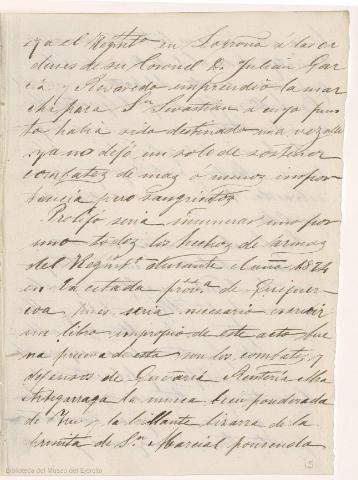 ya el Regimto en Logroño á las or
denes de su Coronel D. Julián Gar
cía y Reboredo emprendió la mar
cha para Sn Sebastián a cuyo pun
to habia sido destinado una vez alli
ya no dejó un solo de sostener
combates de mas o menos impor
tancia pero sangrientos
Prolijo seria enumerar uno por
uno todos los hechos de armas
del Regimto durante el año 1874
en la citada prova de Guipuz
coa pues seria necesario escribir
un libro impropio de este acto bue
na prueva de esta son los combates y
defensas de Guetaria Renteria
la nunca bien ponderada
de Irun y la brillante bizarra de la
Ermita de Sn Marcial poniendo
15
Biblioteca del Museo del Ejército